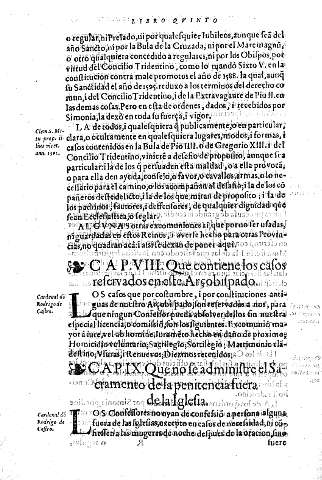 LIBRO QVINTO
o regular, ni Prelado, ni por qualesquier Iubileos, aunque sea del
año Sancto, ni por la Bula de la Cruzada, ni por el Mare magnū,
o otro qualquiera concedido a regulares, ni por los Obispos, por
virtud del Concilio Tridentino, como lo mandò Sixto V. en la
constitucion contra male promotos el año de 1588. la qual, aunq̄
su Sanctidad el año de 1595. reduxo a los terminos del derecho co
mun, i del Concilio Tridentino, i de la Extravagante de Pio II. en
las demas cosas. Pero en esta de ordenes, dados, i recebidos por
Simonia, la dexò en toda su fuerça, i vigor.
Clem. 8.
LA de todos, i qualesquiera q̄ publicamente, o en particular
clara, o ocultamente en qualesquiera lugares, modos, i formas, i
casos contenidos en la Bula de Pio IIII. o de Gregorio XIII. i del
Concilio Tridentino,
particular i la de los q̄
para ella den ayuda, consejo, o favor, o cavallos, armas, o lo ne-
cessario para el camino, o los acompañan al desafio, i la de los cō
pañeros deste delicto, i la de los que miran de proposito, i la de
los padrinos, fautores, i defensores, de qualquier dignidad que
sean Ecclesiastica, o seglar.
ALGVNAS otras excomuniones ai, que por no ser usadas,
ni guardadas en estos Reinos, i averse hecho para otras Provin-
cias, no quadran acà i assi se dexan de poner aqui.
CAP. VIII. Que contiene los casos
reservados en este Arçobispado.
Cardenal dō
Rodrigo de
Castro.
LOS casos que por costumbre, i por constituciones anti-
guas de nuestro Arçobispado, son reservados a nos, para
que ningun Confessor pueda absolver dellos sin nuestra
especial licencia, o comission, son los siguientes.
Homicidio voluntario, Sacrilegio, Sortilegio, Matrimonio cla-
destino,
CAP. IX. Que no se administre el Sa-
cramento de la penitencia fuera
de la Iglesia.
Cardenal dō
Rodrigo de
Castro.
LOS Confessores no oyan de confessiō a persona alguna
fuera de las Iglesias, excepto en casos de necessidad, ni cō
fiessen a las mugeres de noche despues de la oracion, sino
fuere